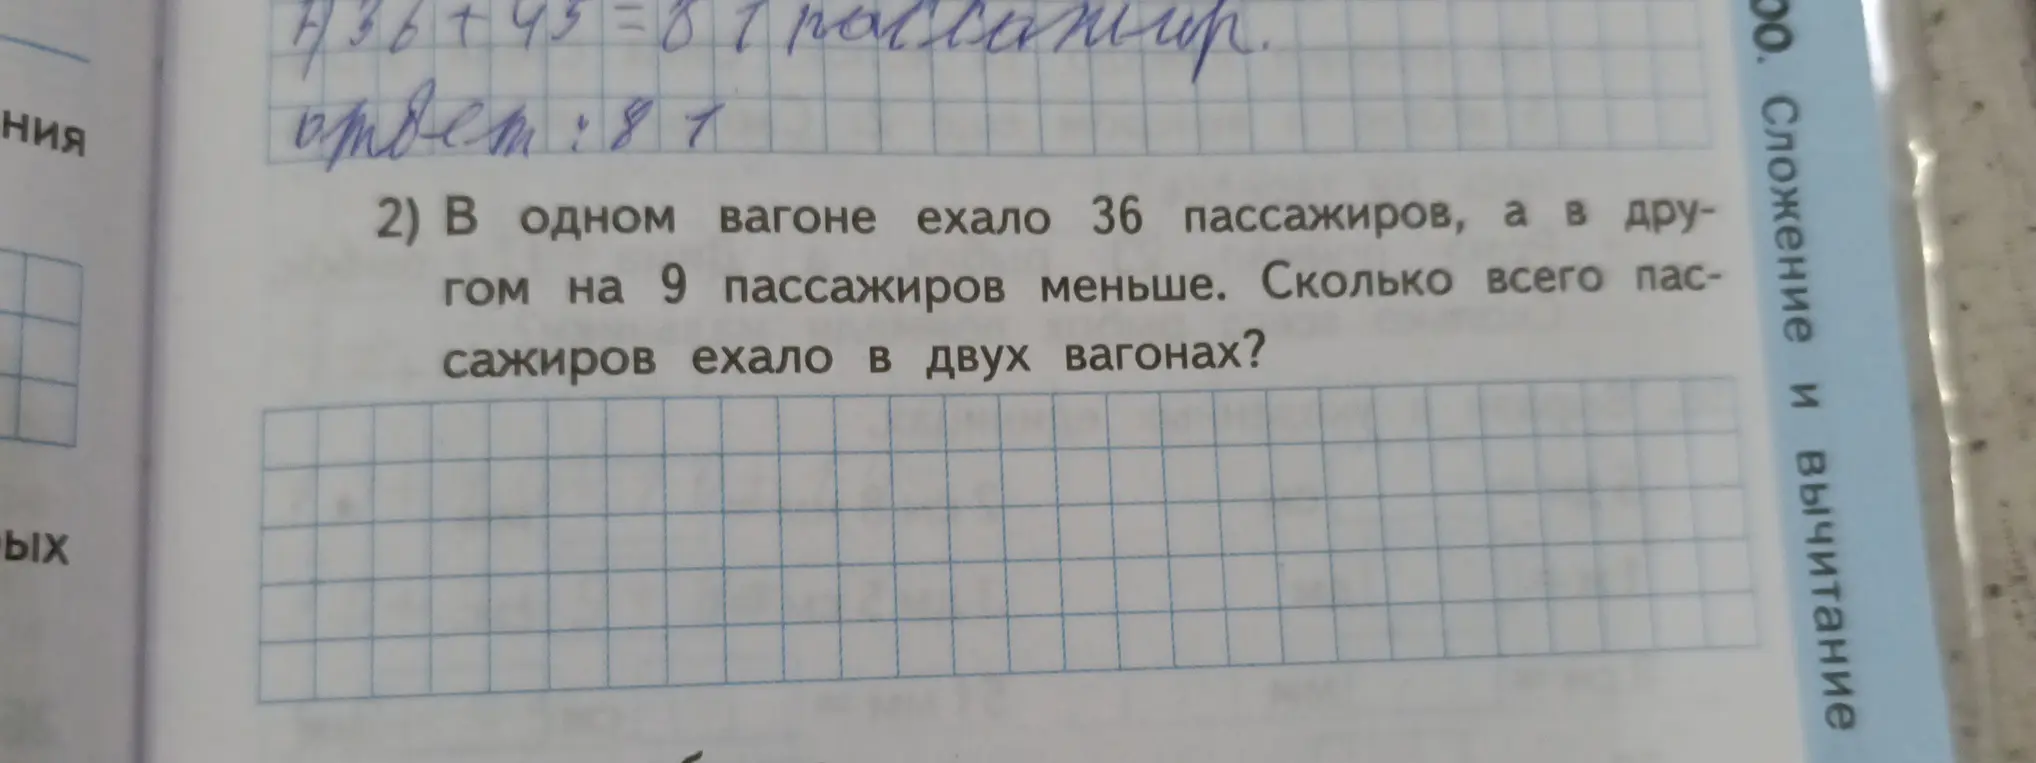 1) 36 + 45 = 81 пассажир.
ответ : 81
2) В одном вагоне ехало 36 пассажиров, а в дру-
гом на 9 пассажиров меньше. Сколько всего пас-
сажиров ехало в двух вагонах?
ния
ых
00. Сложение и вычитание